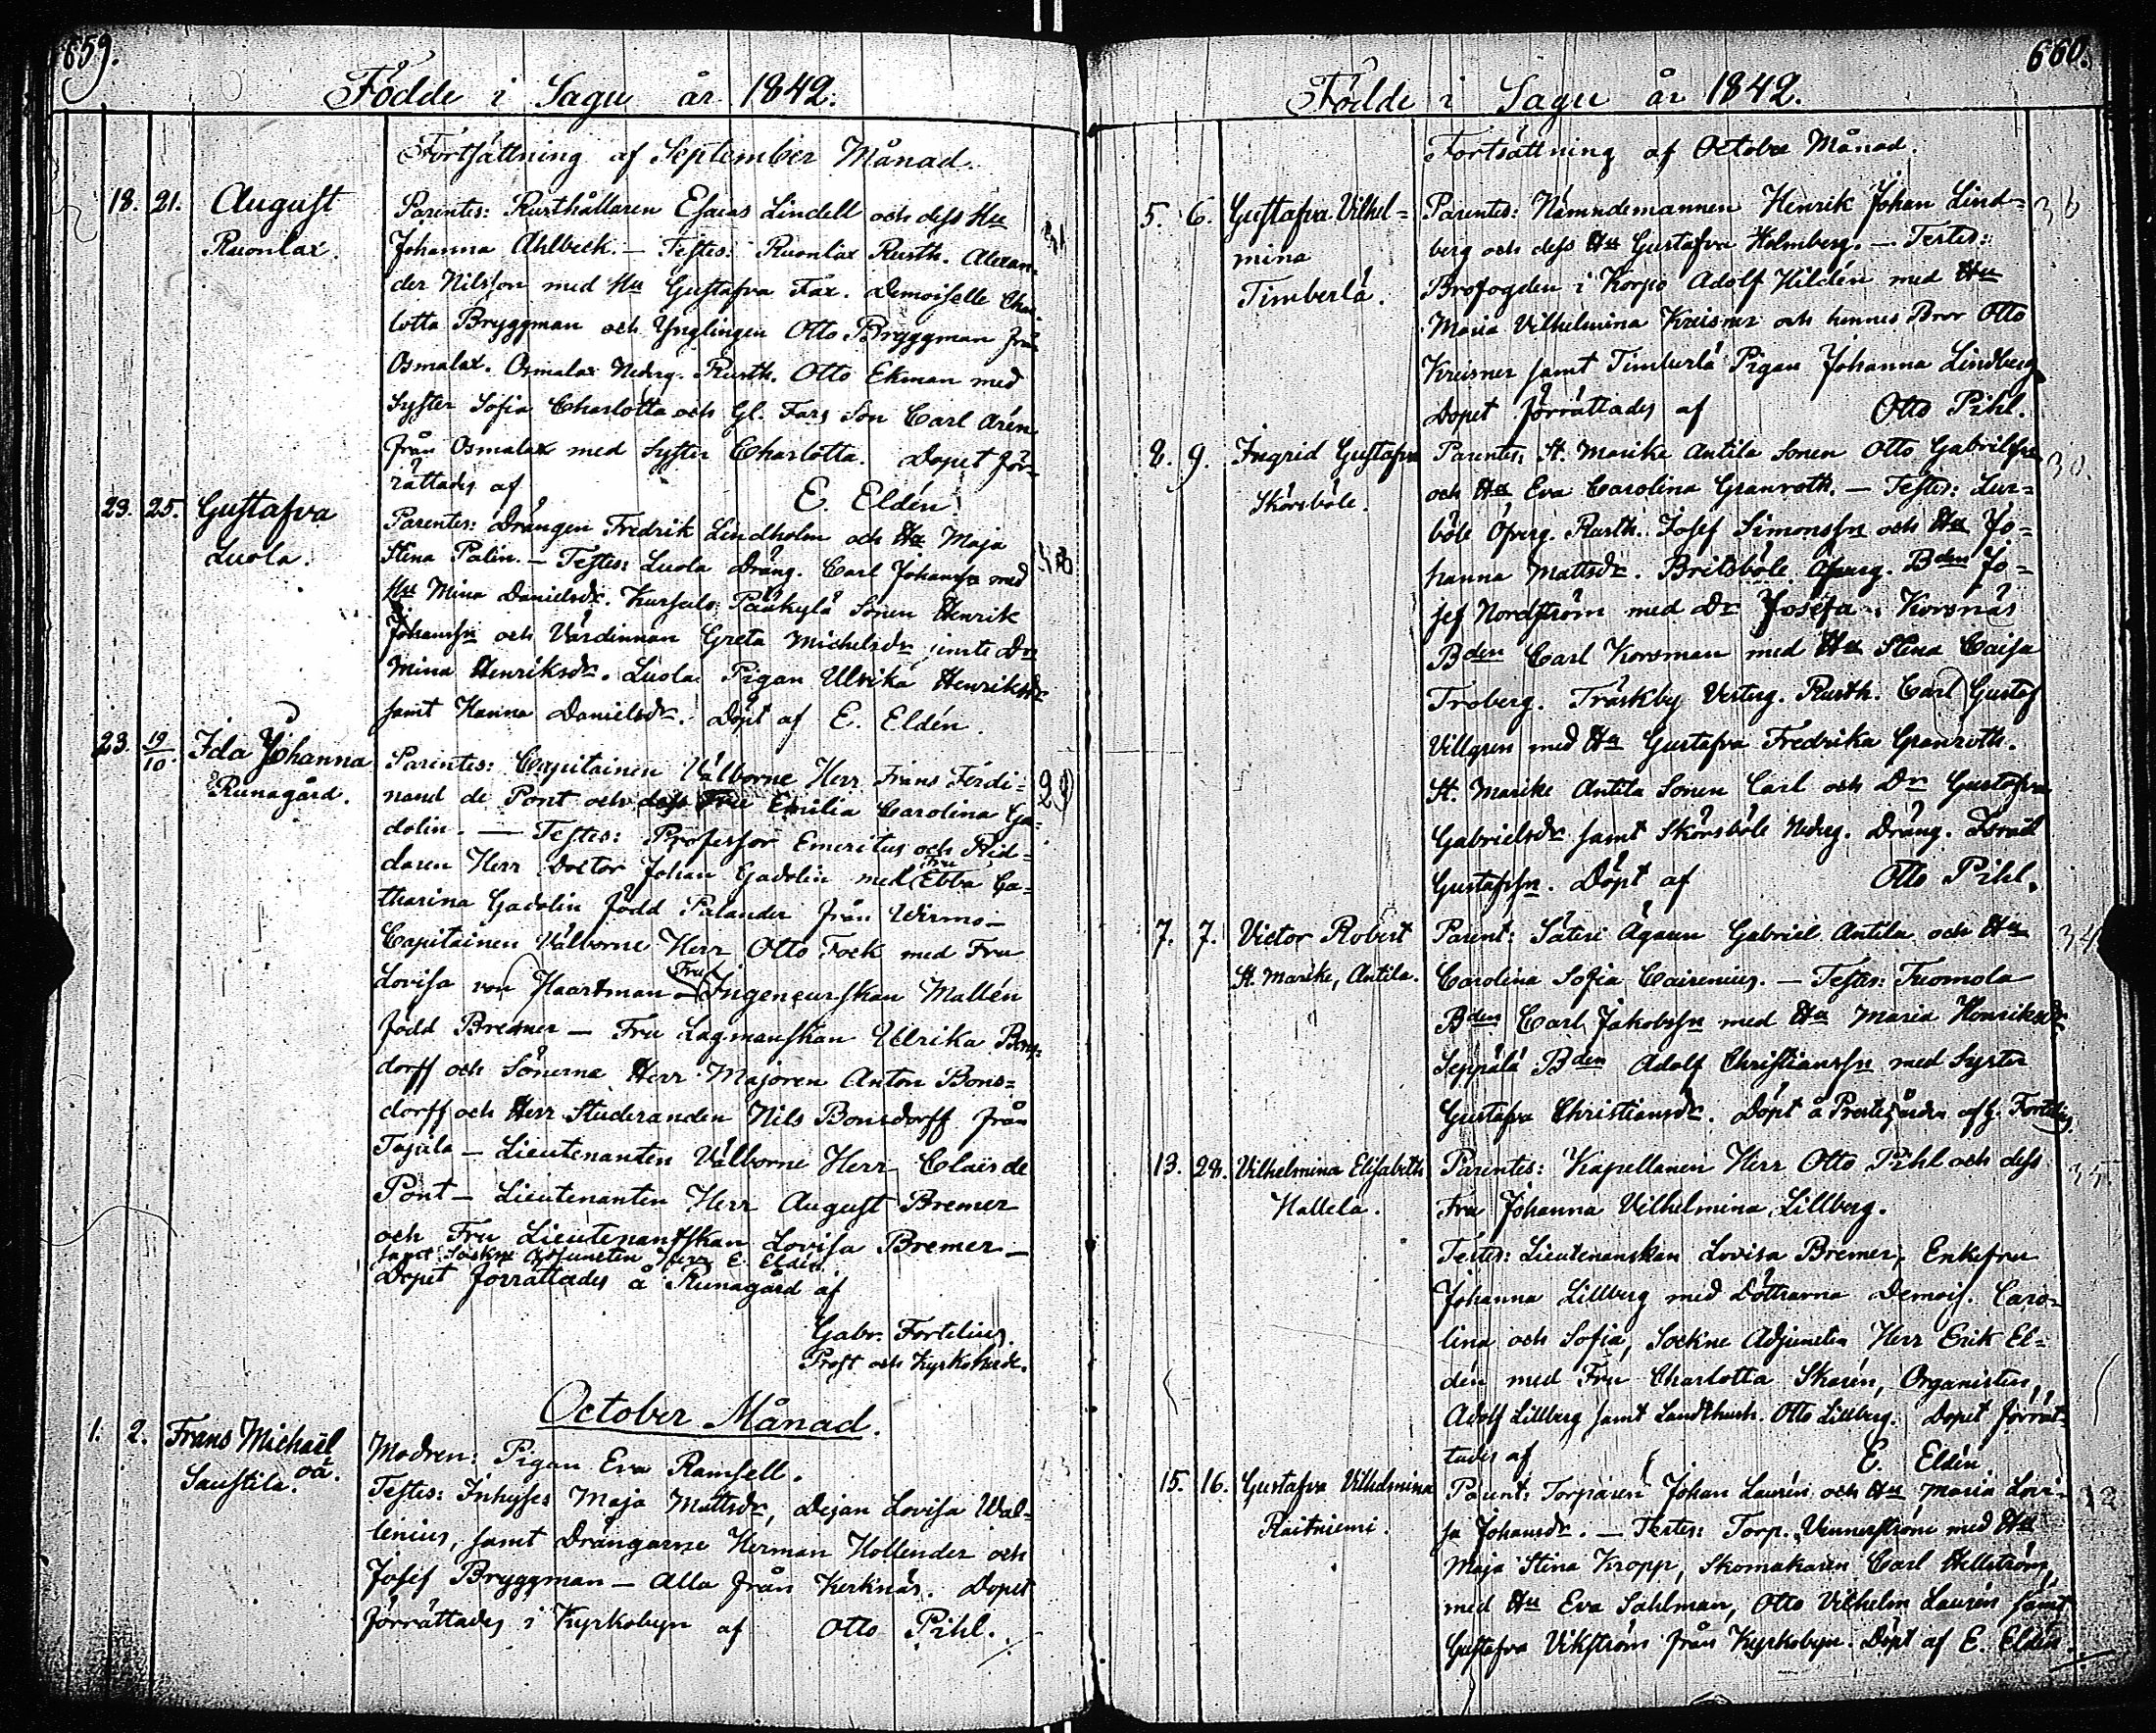 659.
Födde i Sagu år 1842.
Fortsättning af September Månad.
18. 21. August
Ruonlax.
Parentes: Rusthållaren Esaias Lindell och dess Hu
Johanna Ahlbeck. — Testes: Ruonlax Rusth. Alexan-
der Nilsson med Hu Gustafva Fax. Demoiselle Char-
lotta Bryggman och Ynglingen Otto Bryggman från
Osmalax. Osmalax Nederg. Rusth. Otto Ekman med
Syster Sofia Charlotta och Gl. Fars Son Carl Arén
från Osmalax med Syster Charlotta. Dopet för-
rättades af E. Eldén.
23. 25. Gustafva
Luola.
Parentes: Drängen Fredrik Lindholm och Hu Maja
Stina Palin. — Testes: Luola Dräng. Carl Johanss. med
Hu Mina Danielsdr. Pääkylä Sonen Henrik
Johanssn och Värdinnan Greta Michelsdr jemte Dr
Mina Henriksdr. Luola Pigan Ulrika Henriksdr
samt Hanna Danielsdr. Döpt af E. Eldén.
23. 19/10. Ida Johanna
Runagård.
29
Parentes: Capitainen Välborne Herr Frans Ferdi-
nand de Pont och dess Fru Emilia Carolina Ga-
dolin. — Testes: Professor Emeritus och Rid-
daren Herr Doctor Johan Gadolin med Fru Ebba Ca-
tharina Gadolin född Palander från Wirmo —
Capitainen Välborne Herr Otto Fock med Fru
Lovisa von Haartman — Fru Ingeneurskan Mallén
född Bremer — Fru Lagmanskan Ulrika Bons-
dorff och Sönerna Herr Majoren Anton Bons-
dorff och Herr Studeranden Nils Bonsdorff från
Tajala — Lieutenanten Välborne Herr Claës de
Pont — Lieutenanten Herr August Bremer
och Fru Lieutenantskan Lovisa Bremer —
samt Sockne Adjuncten Herr E. Eldén.
Dopet förrättades å Runagård af
Gabr. Fortelius.
Prost och Kyrkoherde.
October Månad.
1. 2. Frans Michaël
oä.
Saustila.
Modren: Pigan Eva Ramsell.
Testes: Inhyses Maja Mattsdr, Dejan Lovisa Wal-
lenius, samt Drängarne Herman Hollender och
Josef Bryggman — Alla från Kerknäs. Dopet
förrättades i Kyrkobyn af Otto Pihl.
660.
Födde i Sagu år 1842.
Fortsättning af October Månad.
5. 6. Gustafva Vilhel-
mina
Timberlä.
36
Parentes: Nämndemannen Henrik Johan Lind-
berg och dess Hu Gustafva Holmberg. — Testes:
Brofogden i Korpo Adolf Hildén med Hu
Maria Vilhelmina Kreisner och hennes Bror Otto
Kreisner samt Timberlä Pigan Johanna Lindberg
Dopet förrättades af Otto Pihl.
8. 9. Ingrid Gustafva
Skörsböle.
30.
Parentes: St. Marike Antila Sonen Otto Gabrielssn
och Hu Eva Carolina Granroth. — Testes: Lur-
böle Öfverg. Rusth. Josef Simonssn och Hu Jo-
hanna Mattsdr. Britsböle Bden Jo-
sef Nordström med Dr Josefa. Korsnäs
Bden Carl Korsman med Hu Stina Caisa
Troberg. Träskby Vesterg. Rusth. Carl Gustaf
Villgren med Hu Gustafva Fredrika Granroth.
St. Marike Antila Sonen Carl och Dr Gustafva
Gabrielsdr samt Skörsböle Nederg. Dräng. Israël
Gustafssn. Döpt af Otto Pihl.
7. 7. Victor Robert
St. Marike, Antila.
34
Parent: Säteri Ägaren Gabriel Antila och Hu
Carolina Sofia Cairenius. — Testes: Tuomola
Bden Carl Jakobssn med Hu Maria Henriksdr
Seppälä Bden Adolf Christianssn med Syster
Gustafva Christiansdr. Döpt å Prestegården af G. Fortelius.
13. 28. Vilhelmina Elisabeth
Hallela.
35.
Parentes: Kapellanen Herr Otto Pihl och dess
Fru Johanna Vilhelmina Lillberg.
Testes: Lieutenanskan Lovisa Bremer, Enkefru
Johanna Lillberg med Döttrarna Demois. Caro-
lina och Sofia, Sockne Adjuncten Herr Erik El-
dén med Fru Charlotta Skarén, Organisten
Adolf Lillberg samt Landthush. Otto Lillberg. Dopet förrät-
tades af E. Eldén
15. 16. Gustafva Vilhelmina
Raitniemi.
32
Parent: Torparen Johan Laurén och Hu Maria Lovi-
sa Johansdr. — Testes: Torp. Vennerström med Hu
Maja Stina Kropp, Skomakaren Carl Hellström,
med Hu Eva Sahlman, Otto Vilhelm Laurén samt
Gustafva Vikström från Kyrkobyn. Döpt af E. Eldén.